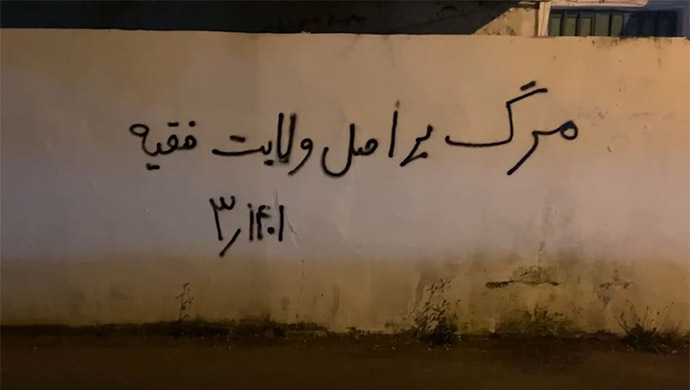 مرگ بر اصل ولایت فقیه
۳/۱۴۰۱